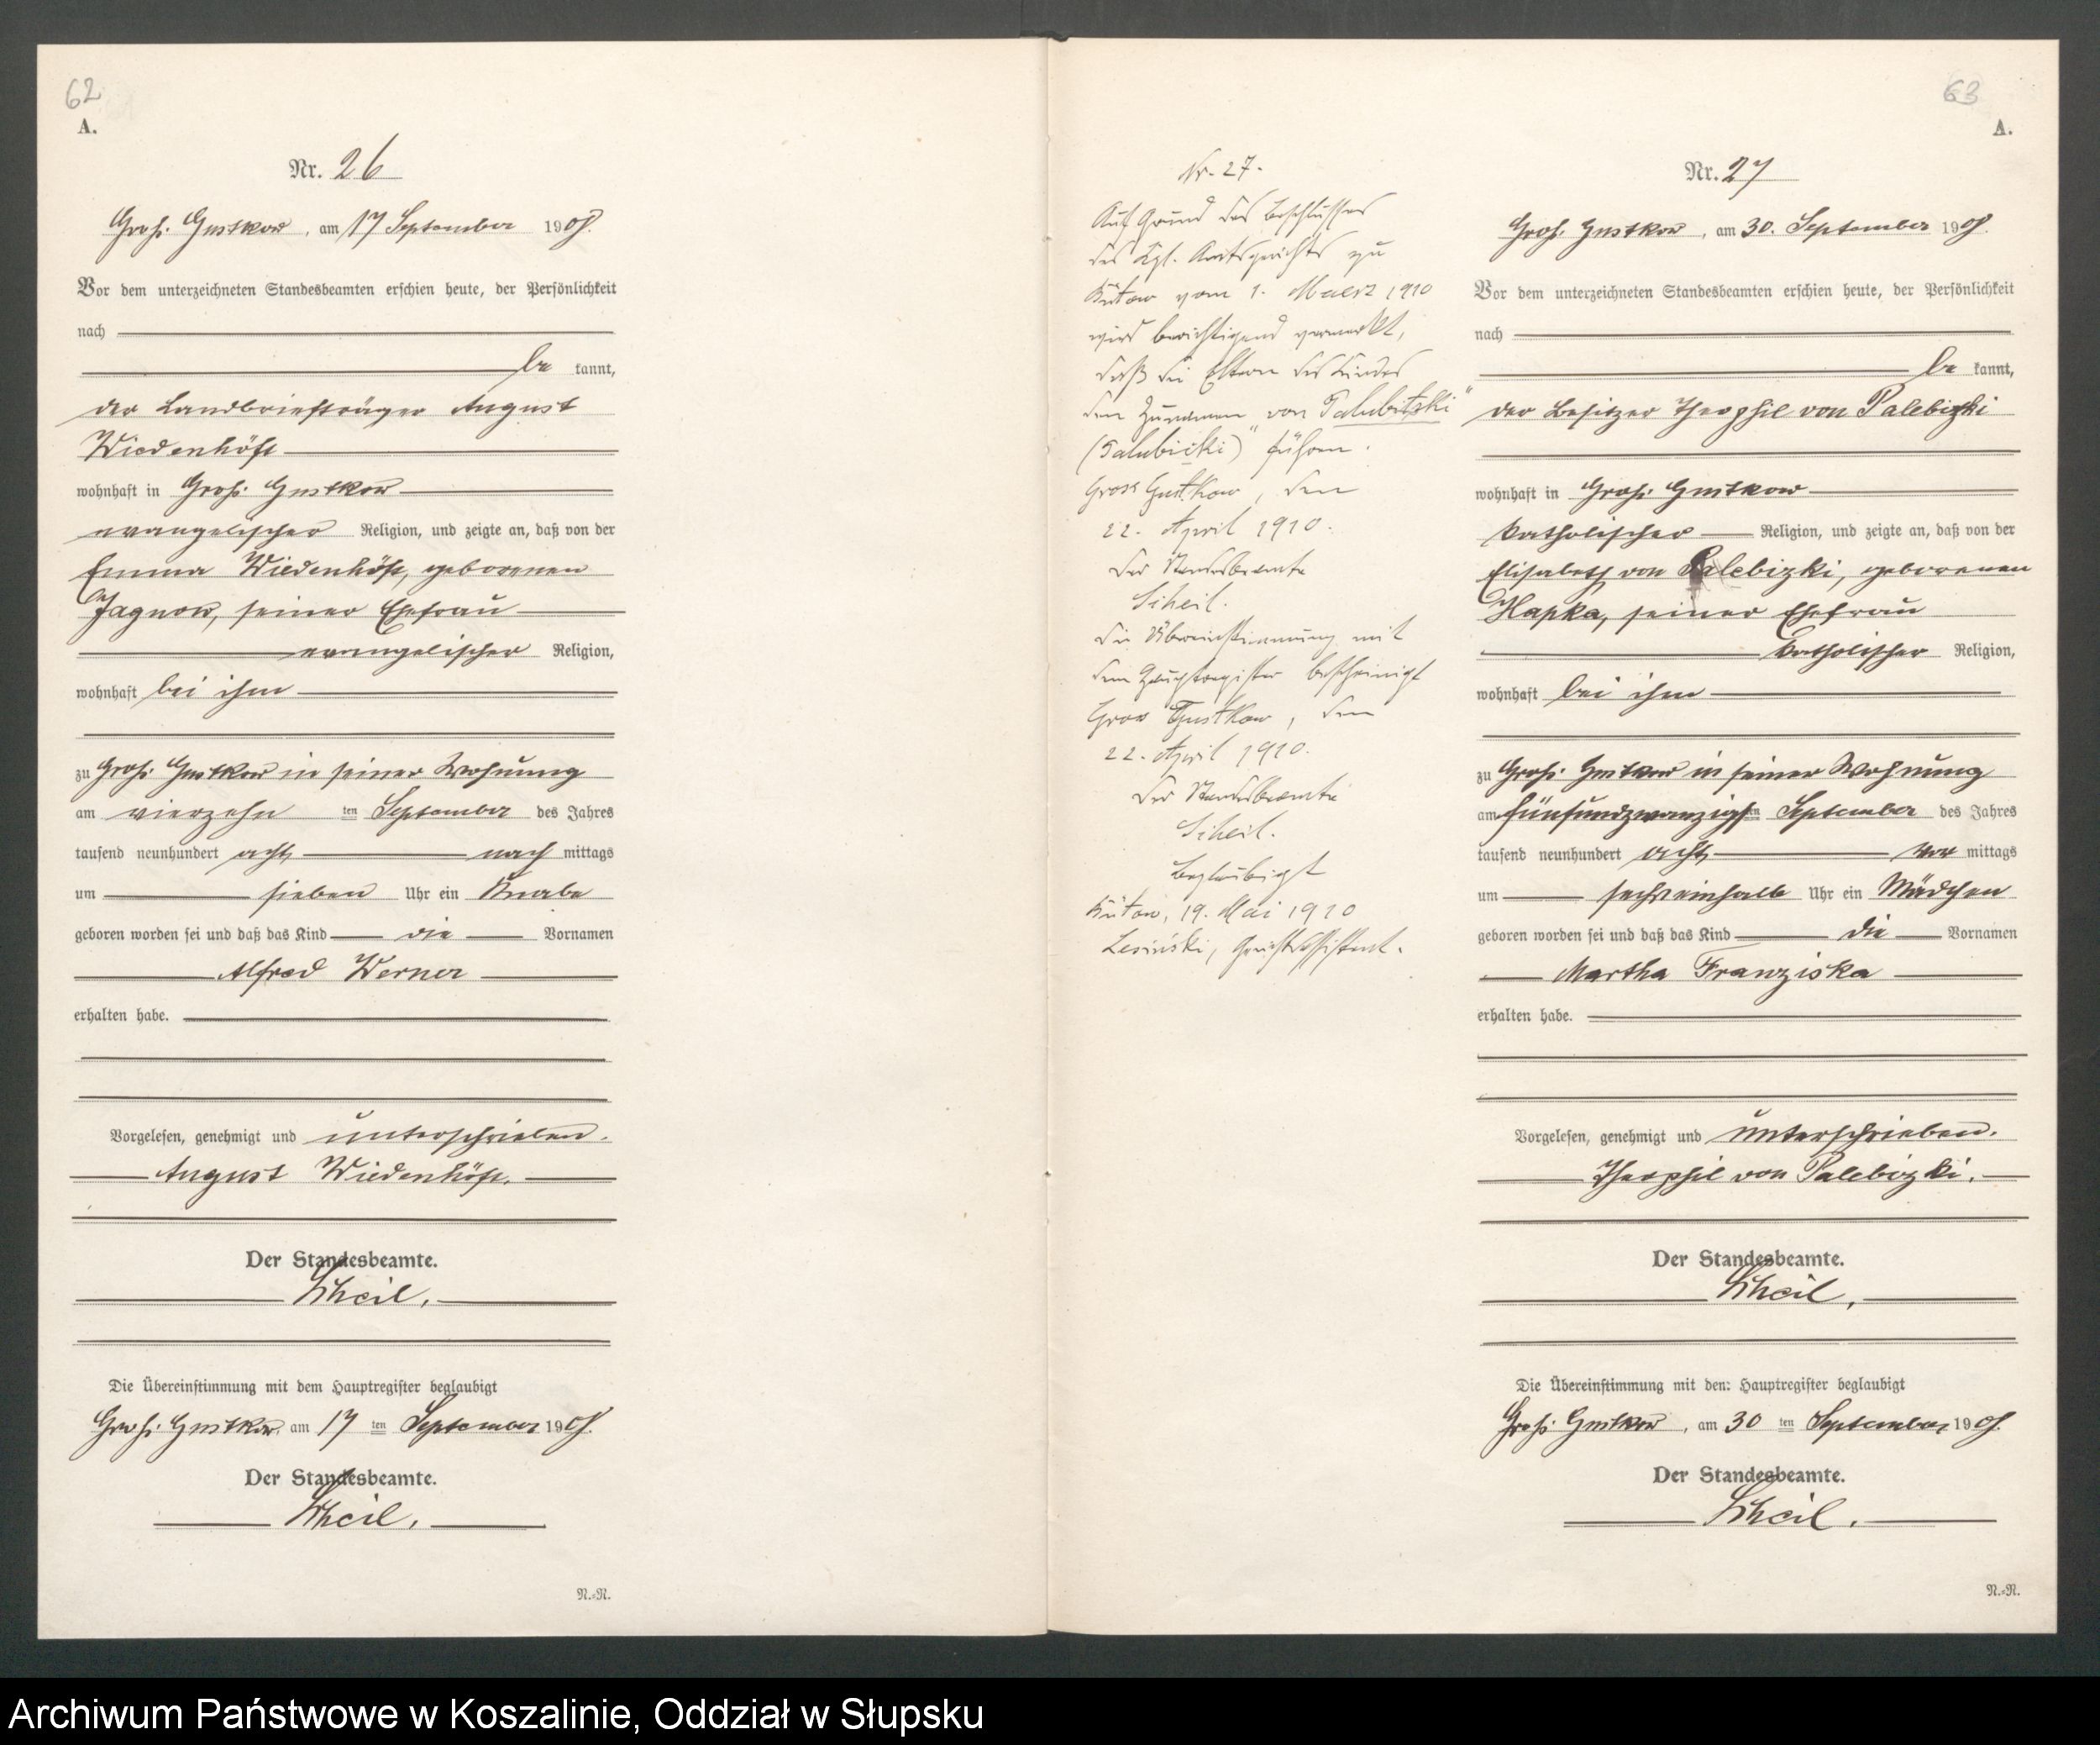 62
A.
Nr. 26
Groß Gustkow, am 17 September 1908.
Vor dem unterzeichneten Standesbeamten erschien heute, der Persönlichkeit
nach
be kannt,
der Landbriefträger August
Wiedenhöft
wohnhaft in Groß Gustkow
evangelischer Religion, und zeigte an, daß von der
Emma Wiedenhöft, geborenen
Jagnow, seiner Ehefrau
evangelischer Religion,
wohnhaft bei ihm
zu Groß Gustkow in seiner Wohnung
am vierzehn ten September des Jahres
tausend neunhundert acht nach mittags
um sieben Uhr ein Knabe
geboren worden sei und daß das Kind die Vornamen
Alfred Werner
erhalten habe.
Vorgelesen, genehmigt und unterschrieben.
August Wiedenhöft.
Der Standesbeamte.
Scheil.
Die Übereinstimmung mit dem Hauptregister beglaubigt
Groß Gustkow, am 17 ten September 1908.
Der Standesbeamte.
Scheil.
N.=N.
Nr. 27.
Auf Grund des Beschlusses
des Kgl. Amtsgerichts zu
Bütow vom 1. Maerz 1910
wird berichtigend vermerkt,
daß die Eltern des Kindes
den Zunamen "von Palubitzki
(Palubicki)" führen.
Gross Gustkow, den
22. April 1910.
Der Standesbeamte
Scheil.
Die Übereinstimmung mit
dem Hauptregister bescheinigt
Gross Gustkow, den
22. April 1910.
Der Standesbeamte
Scheil.
Beglaubigt
Bütow, 19. Mai 1910
Lesiński, Gerichtsassistent.
63
A.
Nr. 27
Groß Gustkow, am 30. September 1908.
Vor dem unterzeichneten Standesbeamten erschien heute, der Persönlichkeit
nach
be kannt,
der Besitzer Theophil von Palebizki
wohnhaft in Groß Gustkow
katholischer Religion, und zeigte an, daß von der
Elisabeth von Palebizki, geborenen
Hapka, seiner Ehefrau
katholischer Religion,
wohnhaft bei ihm
zu Groß Gustkow in seiner Wohnung
am fünfundzwanzigsten September des Jahres
tausend neunhundert acht vor mittags
um sechseinhalb Uhr ein Mädchen
geboren worden sei und daß das Kind die Vornamen
Martha Franziska
erhalten habe.
Vorgelesen, genehmigt und unterschrieben.
Theophil von Palebizki.
Der Standesbeamte.
Scheil.
Die Übereinstimmung mit dem Hauptregister beglaubigt
Groß Gustkow, am 30 ten September 1908.
Der Standesbeamte.
Scheil.
N.=N.
Archiwum Państwowe w Koszalinie, Oddział w Słupsku